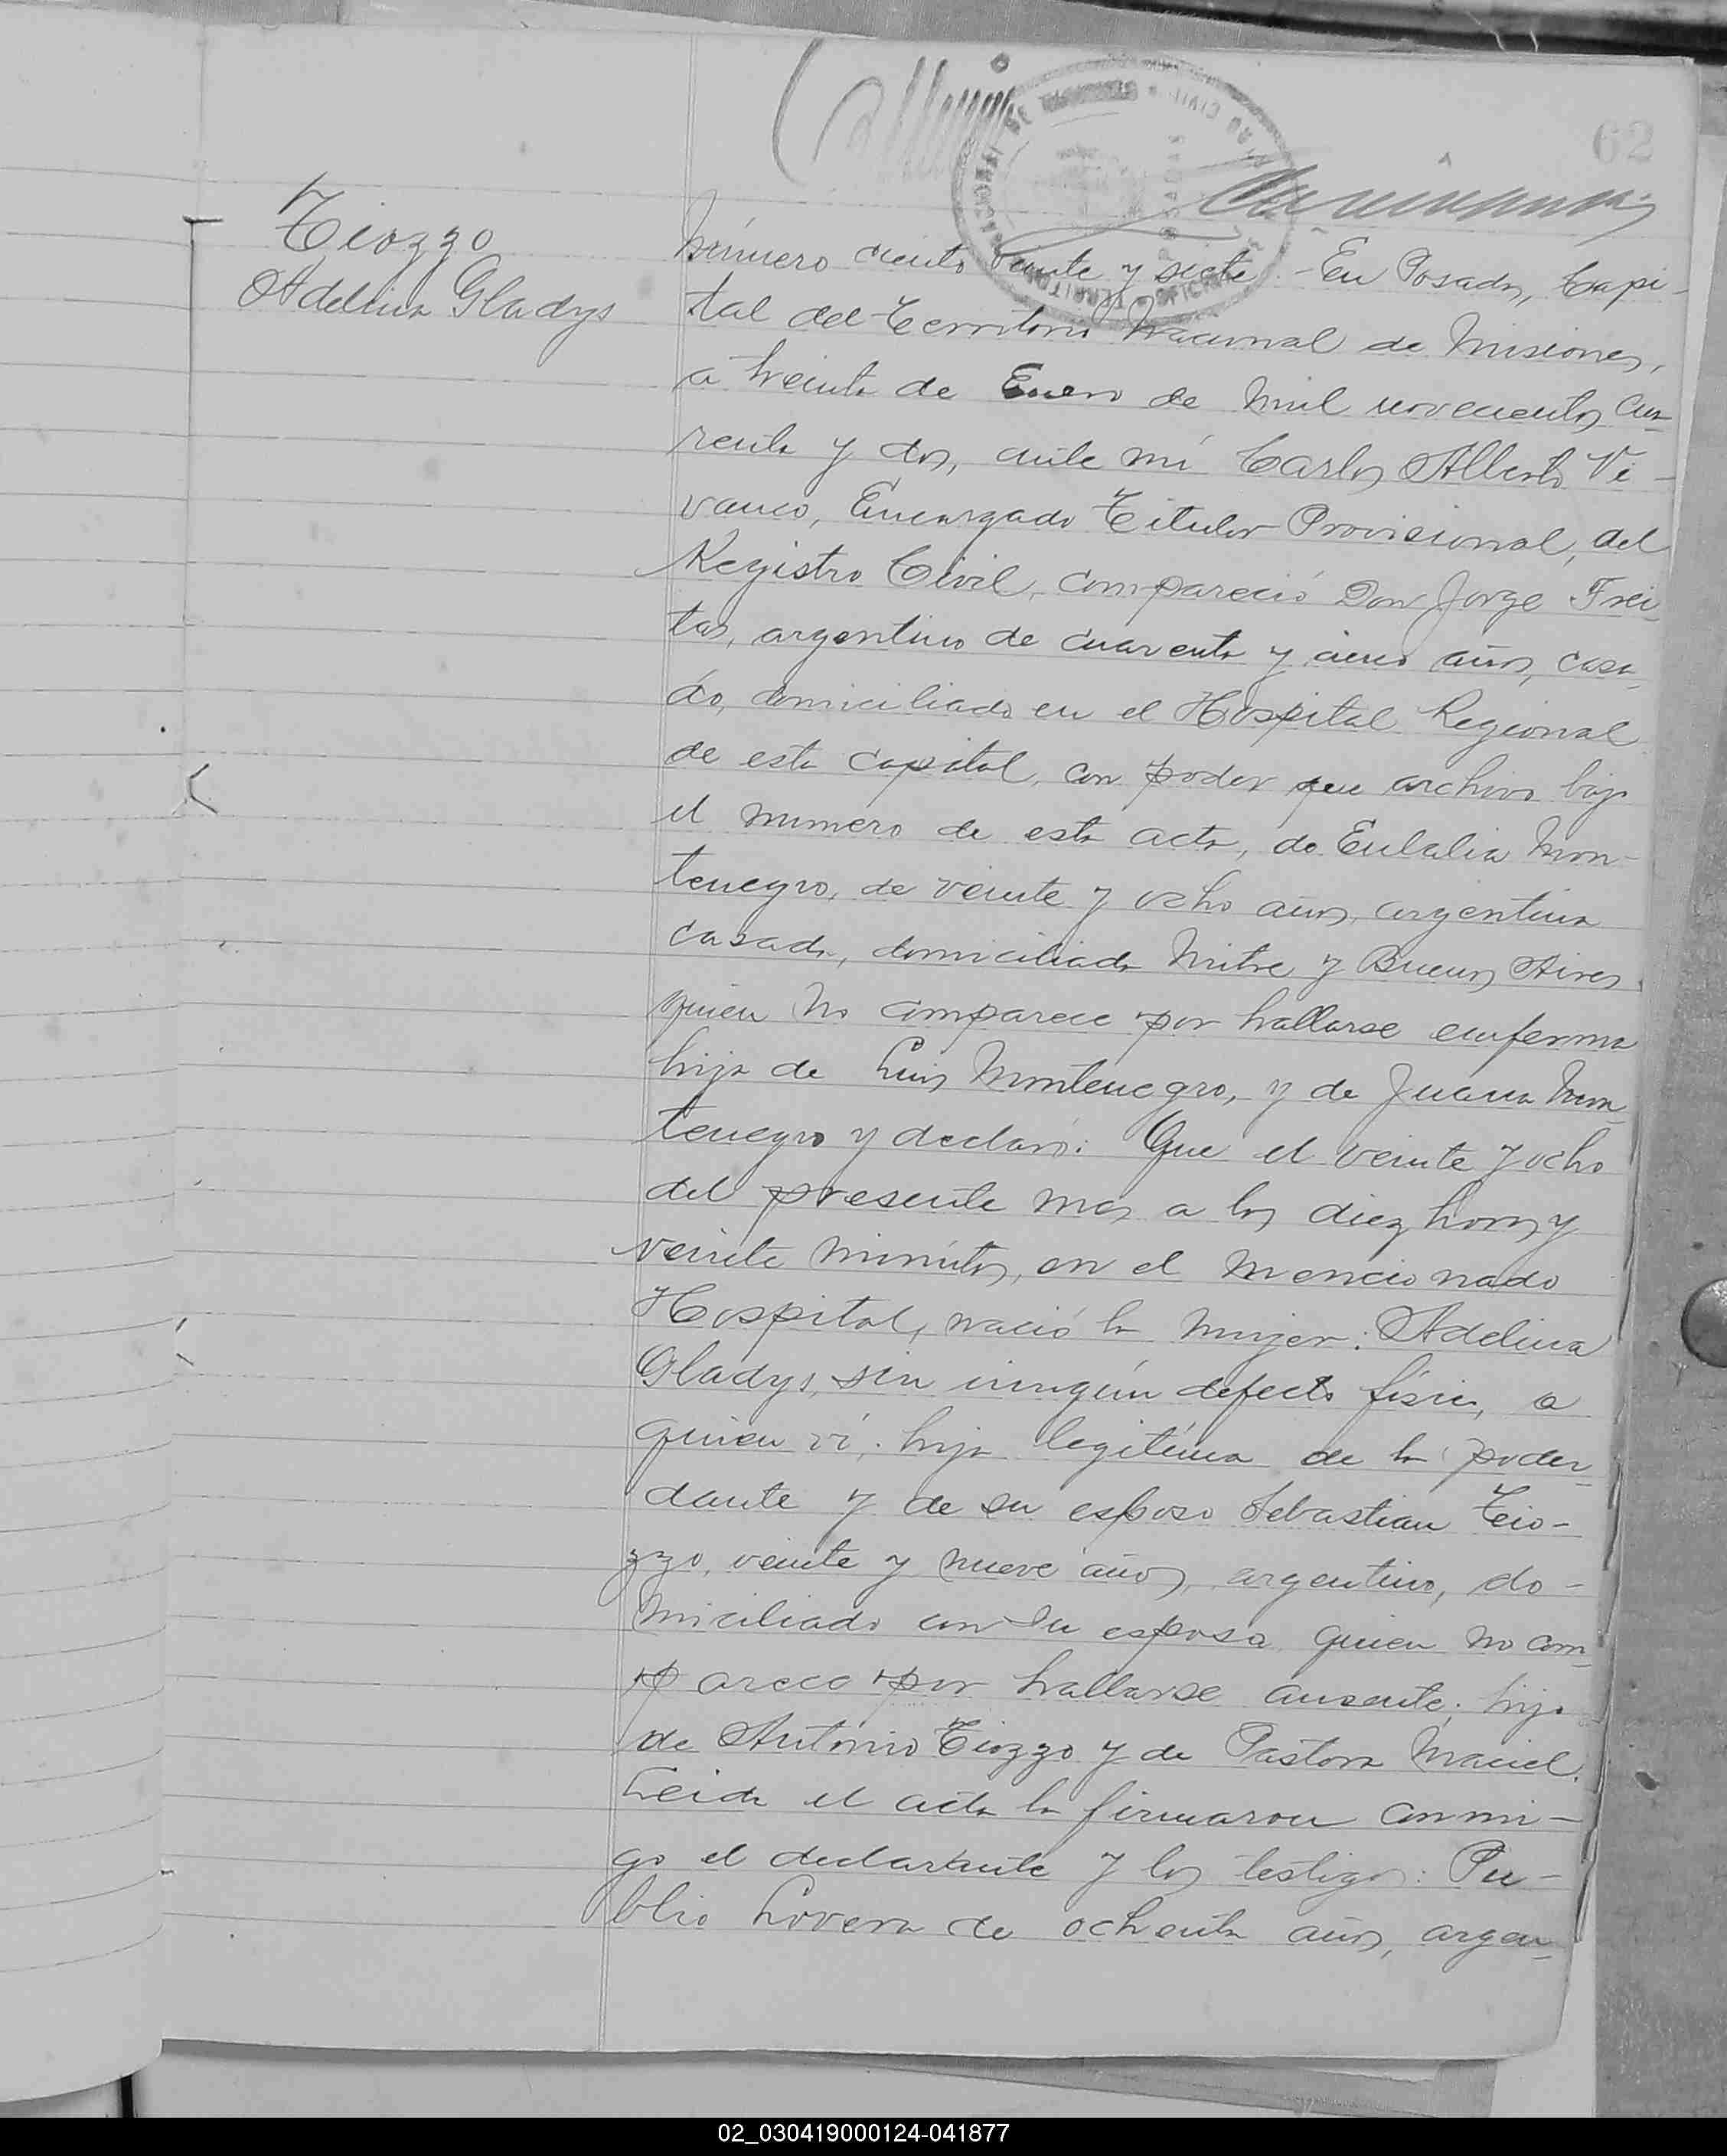 62
Tiozzo
Adelina Gladys
Número ciento veinte y siete.- En Posadas, Capi-
tal del Territorio Nacional de Misiones,
a treinta de Enero de mil novecientos cua-
renta y dos, ante mí Carlos Alberto Vi-
vanco, Encargado Titular Provisional, del
Registro Civil, compareció Don Jorge Frei-
tas, argentino de cuarenta y cinco años, casa-
do, domiciliado en el Hospital Regional
de esta capital, con poder que archivo bajo
el numero de esta acta, de Eulalia Mon-
tenegro, de veinte y ocho años, argentina
casada, domiciliada Mitre y Buenos Aires,
quien no comparece por hallarse enferma
hija de Luis Montenegro, y de Juana Mon-
tenegro y declaró: Que el veinte y ocho
del presente mes a las diez horas y
veinte minutos, en el mencionado
Hospital, nació la mujer: Adelina
Gladys, sin ningún defecto físico, a
quien ví, hija legítima de la poder-
dante y de su esposo Sebastian Tio-
zzo, veinte y nueve años, argentino, do-
miciliado con su esposa quien no com-
parece por hallarse ausente; hijo
de Antonio Tiozzo y de Pastora Maciel.
Leida el acta la firmaron conmi-
go el declarante y los testigos: Pu-
blio Lovera de ochenta años, argen-
02_030419000124-041877